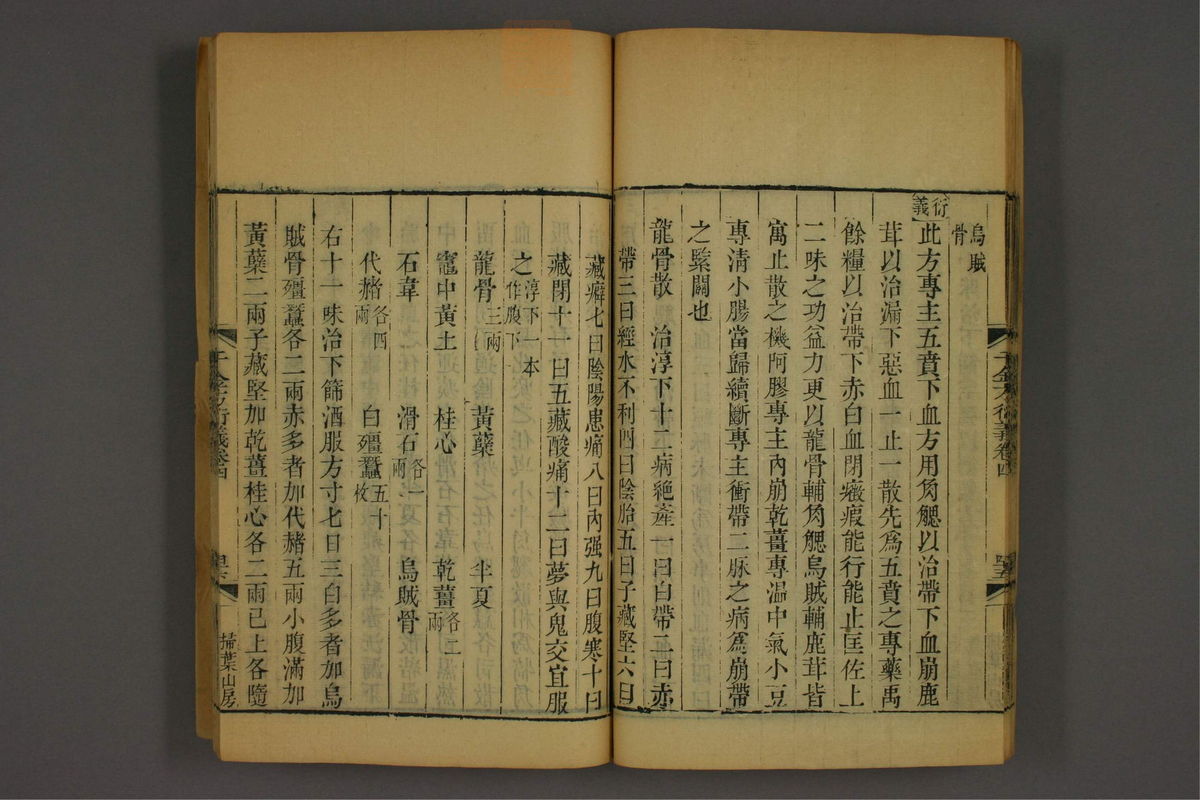 烏賊
骨
衍義
此方專主五賁下血方用角䚡以治帶下血崩鹿
茸以治漏下惡血一止一散先爲五賁之專藥禹
餘糧以治帶下赤白血閉癥瘕能行能止匡佐上
二味之功益力更以龍骨輔角䚡烏賊輔鹿茸皆
寓止散之機阿膠專主內崩乾薑專溫中氣小豆
專清小腸當歸續斷專主衝帶二脉之病爲崩帶
之緊關也
龍骨散　治淳下十二病絶產一曰白帶二曰赤
帶三曰經水不利四曰陰胎五曰子藏堅六曰
藏癖七曰陰陽患痛八曰內强九曰腹寒十曰
藏閉十一曰五藏酸痛十二曰夢與鬼交宜服
之淳下一本作腹下
龍骨三兩　黃蘗　半夏
竈中黃土　桂心　乾薑各二兩
石韋　滑石各一兩　烏賊骨
代赭各四兩　白殭蠶五十枚
右十一味治下篩酒服方寸七日三白多者加烏
賊骨殭蠶各二兩赤多者加代赭五兩小腹滿加
黃蘗二兩子藏堅加乾薑桂心各二兩已上各隨
千金方衍義卷四
掃葉山房
千金方衍義卷四